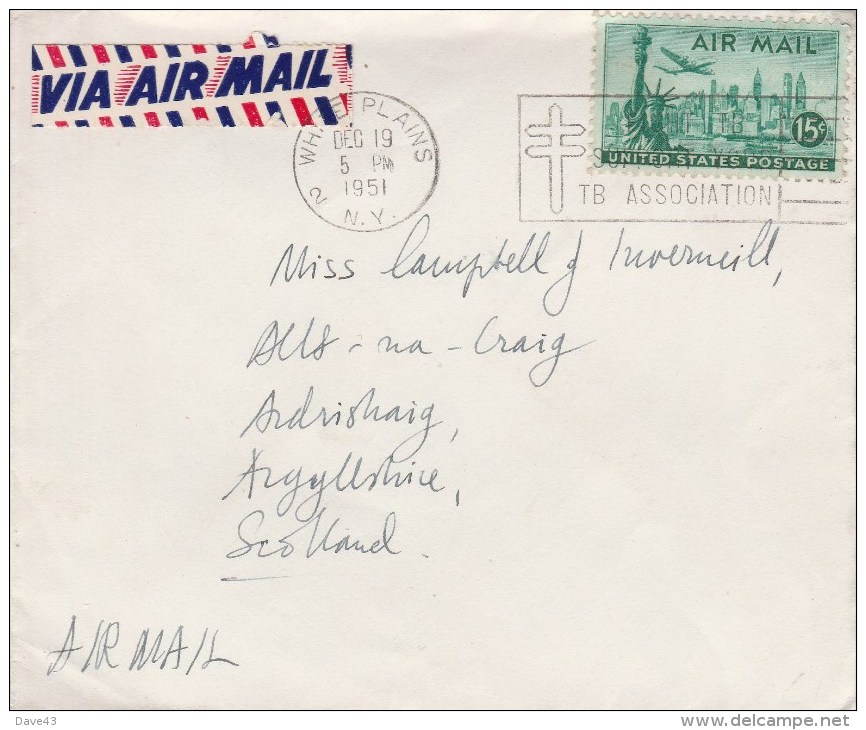 VIA AIR MAIL
WHITE PLAINS
DEC 19
5 PM
1951
2
N.Y.
AIR MAIL
15¢
UNITED STATES POSTAGE
TB
TB ASSOCIATION
Miss Campbell of Inverneill,
-na-Craig
Ardrishaig,
Argyllshire,
Scotland.
AIR MAIL
Dave43
delcampe.net